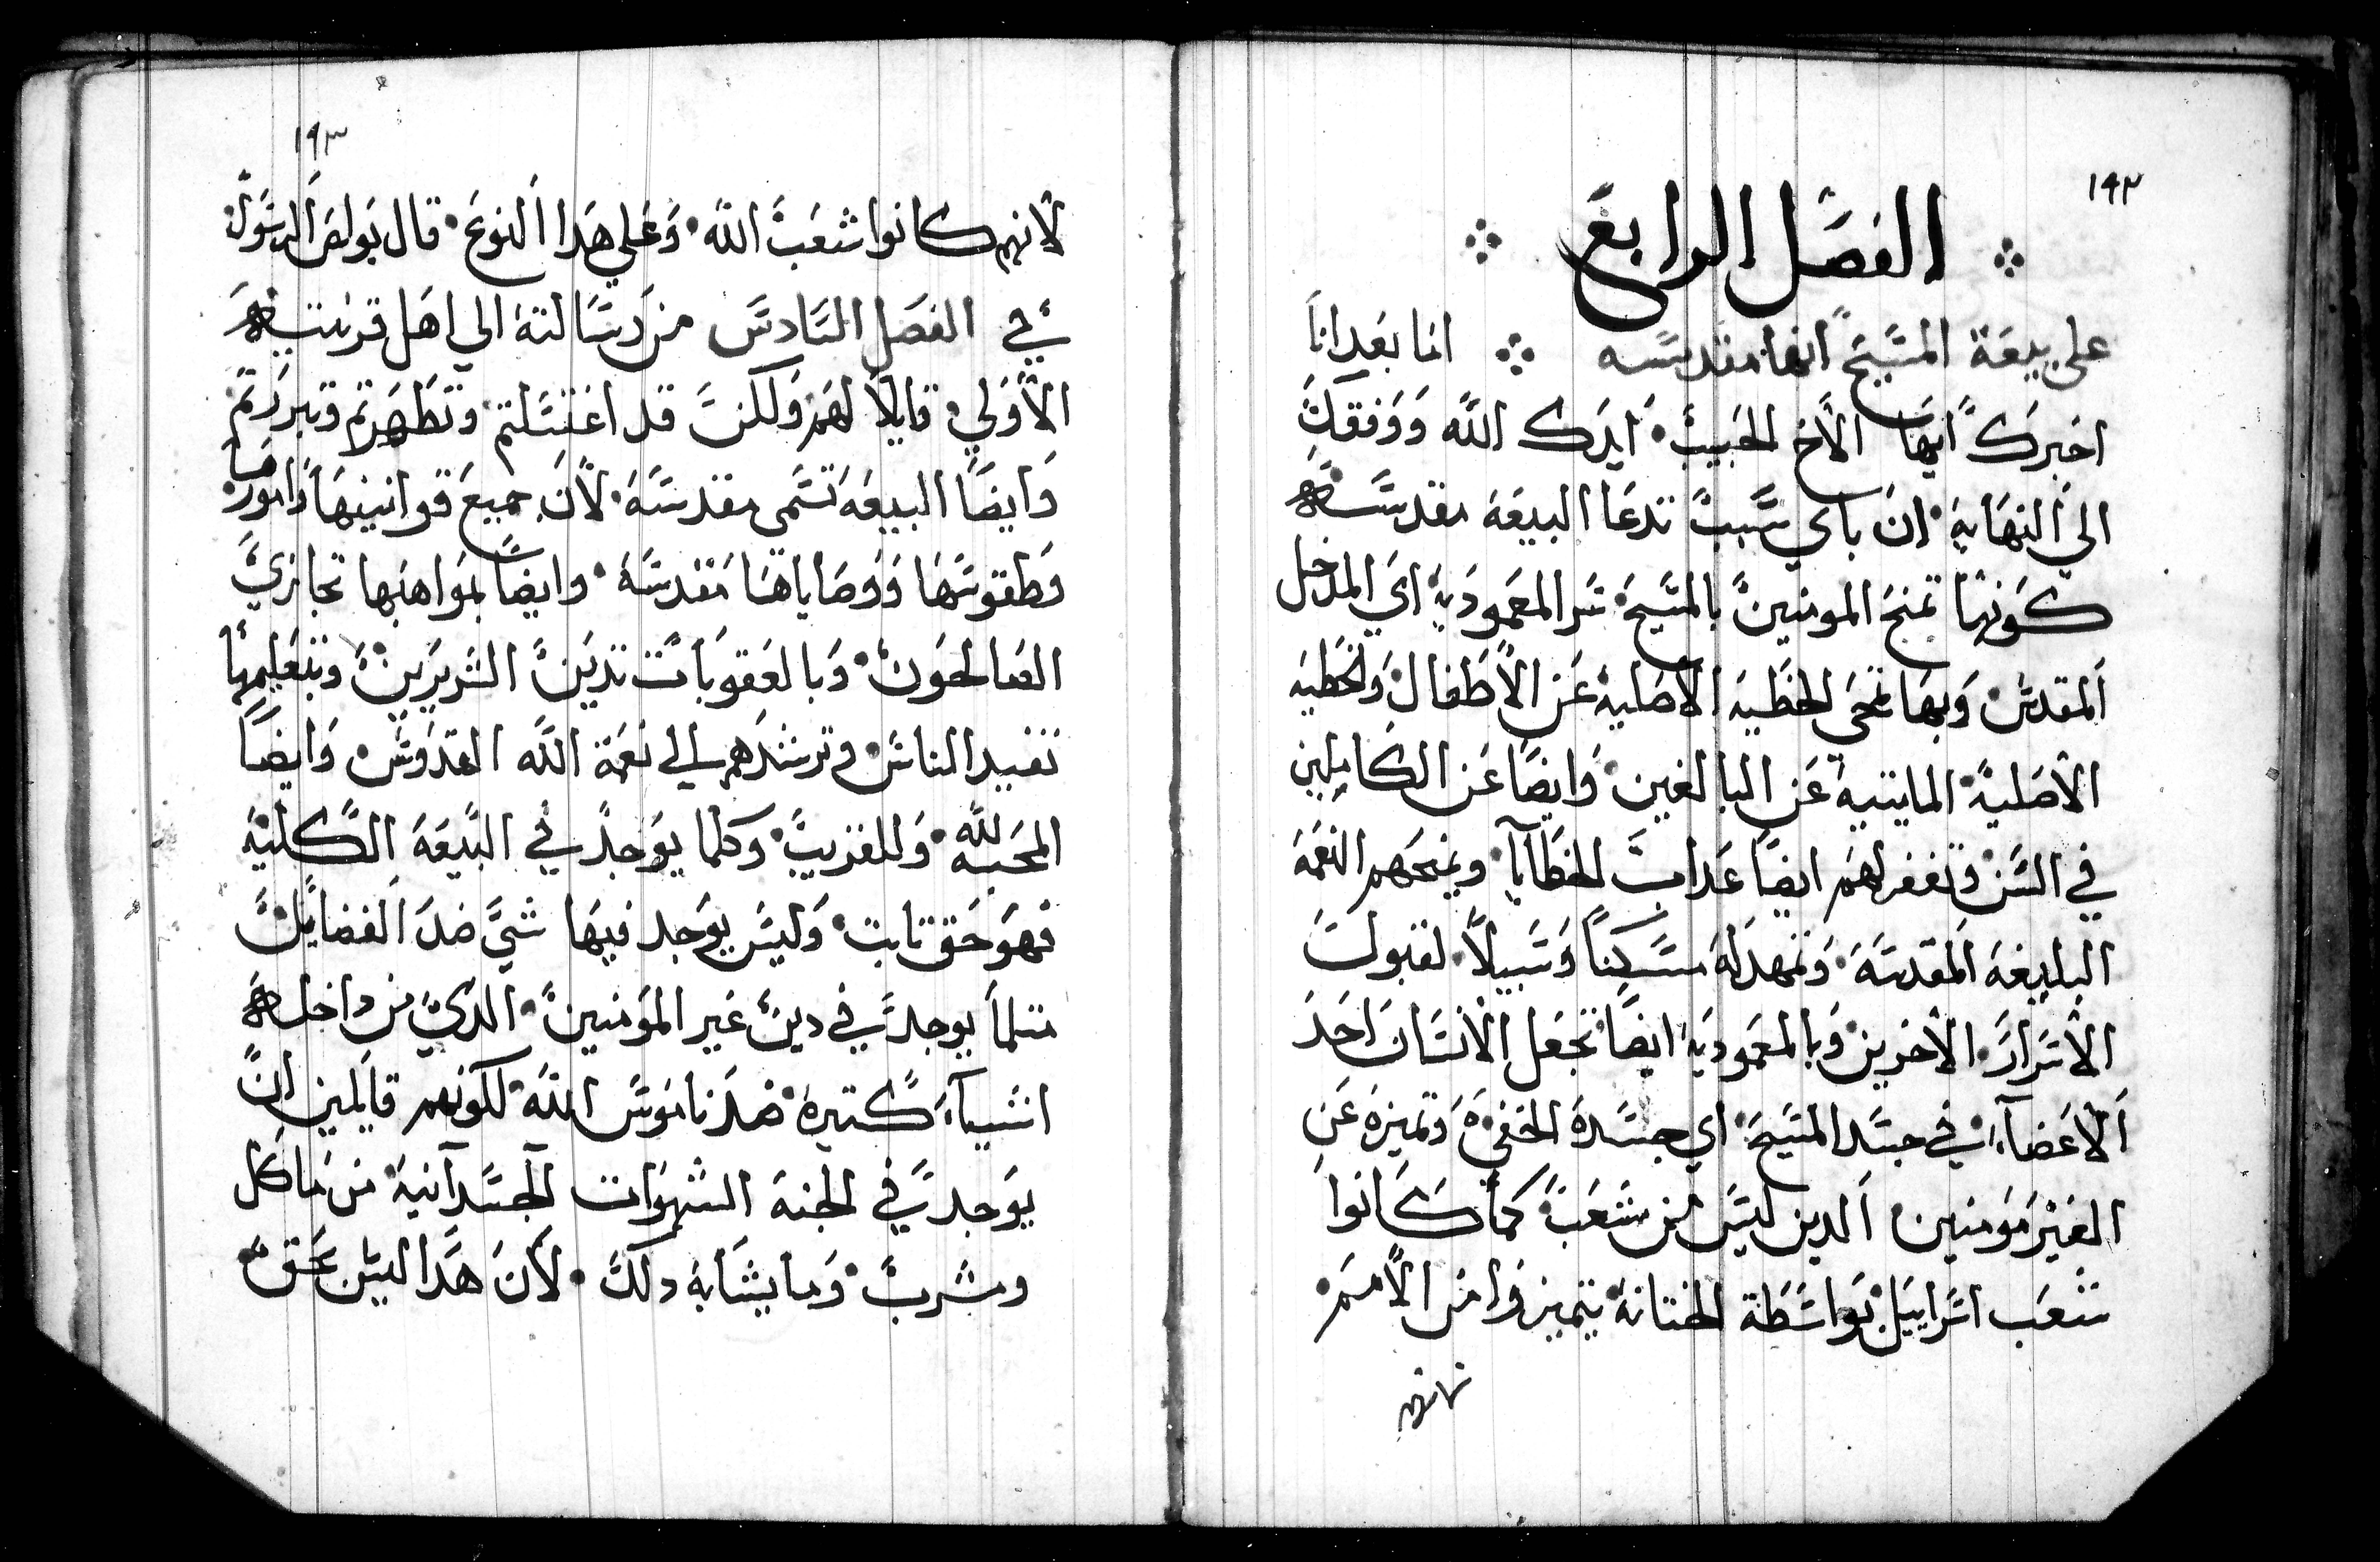 ١٩٢
الفصَل الرابعَ
على بيعَة المسَيحَ انها مقدسَه اما بعَد اناَ
اخبرَكَ ايهَا الاَخ الحَبيبَ اَيدَك اللَّه وَوَفقكَ
الي النهَاية اِن باي سَّببَ تدعَا البيعَة مقدسَه
كوَنها تمنحَ المومنينَ بالمسَيحَ سَر المعَموديَة ايَ المدخل
اَلمقدسَ وَبهَا تمحَي الخطَيه الاَصَلية عَن الاَطفال وَالخطيه
الاَصَلية المايتية عَن البالغين وَايضًا عَن الكَاملين
في السَن وَتغفر لهَم ايضًا عَداب الخطَاَيا ويمنحَهم النعَمة
البليغَة اَلمقدسَة وَتمهد لهَ مسَكنًا وَسَبيلاً لقبولَ
الاَسَرارَ الاَخرين وَبالمعَموديَة ايضًا تجَعَل الاَنسَان احَدَ
اَلاَعَضآء في جسَد المسَيحَ اي جسَدهَ الخفي وَتميزهَ عَن
الغيَر مَوَمنين اَلدين ليَس من شَعَبهَ كماَ كاَنواَ
شعَب اسَراييَل بوَاسَطَة الختانة يتميزوَا من الاَممَ
لانهم
١٩٣
لاَنهم كانوا شعَبَ اللَّه وَعَلي هَدا اَلنوعَ قال بَولصَ الرسَوَل
في الفصَل السَادسَ من رسَالتهَ الي اهَل قرنتيهَ
الاَوَلي قايلاً لهَم وَلكنَ قد اغتسَلتم وَتطَهرَتم وَتبررَتم
وَايضًا البيعَه تسَمي مقدسَة لاَن جميعَ قوانينهَا وَامورَهَا
وَطقوسَهَا وَوَصَاياهَا مَقدسَة وايضًا بموَاهبها تجازيَ
الصَالحَونَ وَبالعَقوبَات تديَنَ الشَريرَينَ وبتعَليمَها
تفيد الناسَ وَترشدَهم الي نعَمة اللَّه القدوَسَ وَايضًا
المحَبه للَّه وَللقريبَ وَكلما يوَجدَ في البيَعَة الكَلية
فهوَ حَق تابت وَليسَ يوَجد فيهَا شيَ ضدَ اَلفضايَلَ
متلماَ يوجدَ في دينَ غَير الموَمنينَ الديَ من داخلهَ
اشَياَء كتيرهَ ضدَ نامَوسَ اللَّه لكونهم قايَلين انَ
يوَجدَ في الجنة الشهوَات الجسَدَآنية من مَاكل
ومشربَ وَما يشَابه دلكَ لاَنَ هدَا ليسَ بحَق